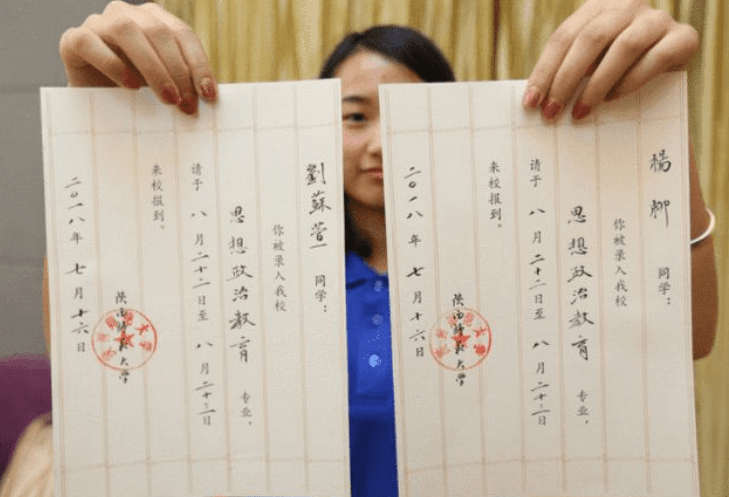 劉蘇萱 同学：
你被录入我校
思想政治教育 专业，
请于 八 月 二十二日至 八 月 二十三日
来校报到。
陕西师范大学
二〇一八年 七 月 十六日
楊柳 同学：
你被录入我校
思想政治教育 专业，
请于 八 月 二十二日至 八 月 二十三日
来校报到。
陕西师范大学
二〇一八年 七 月 十六日